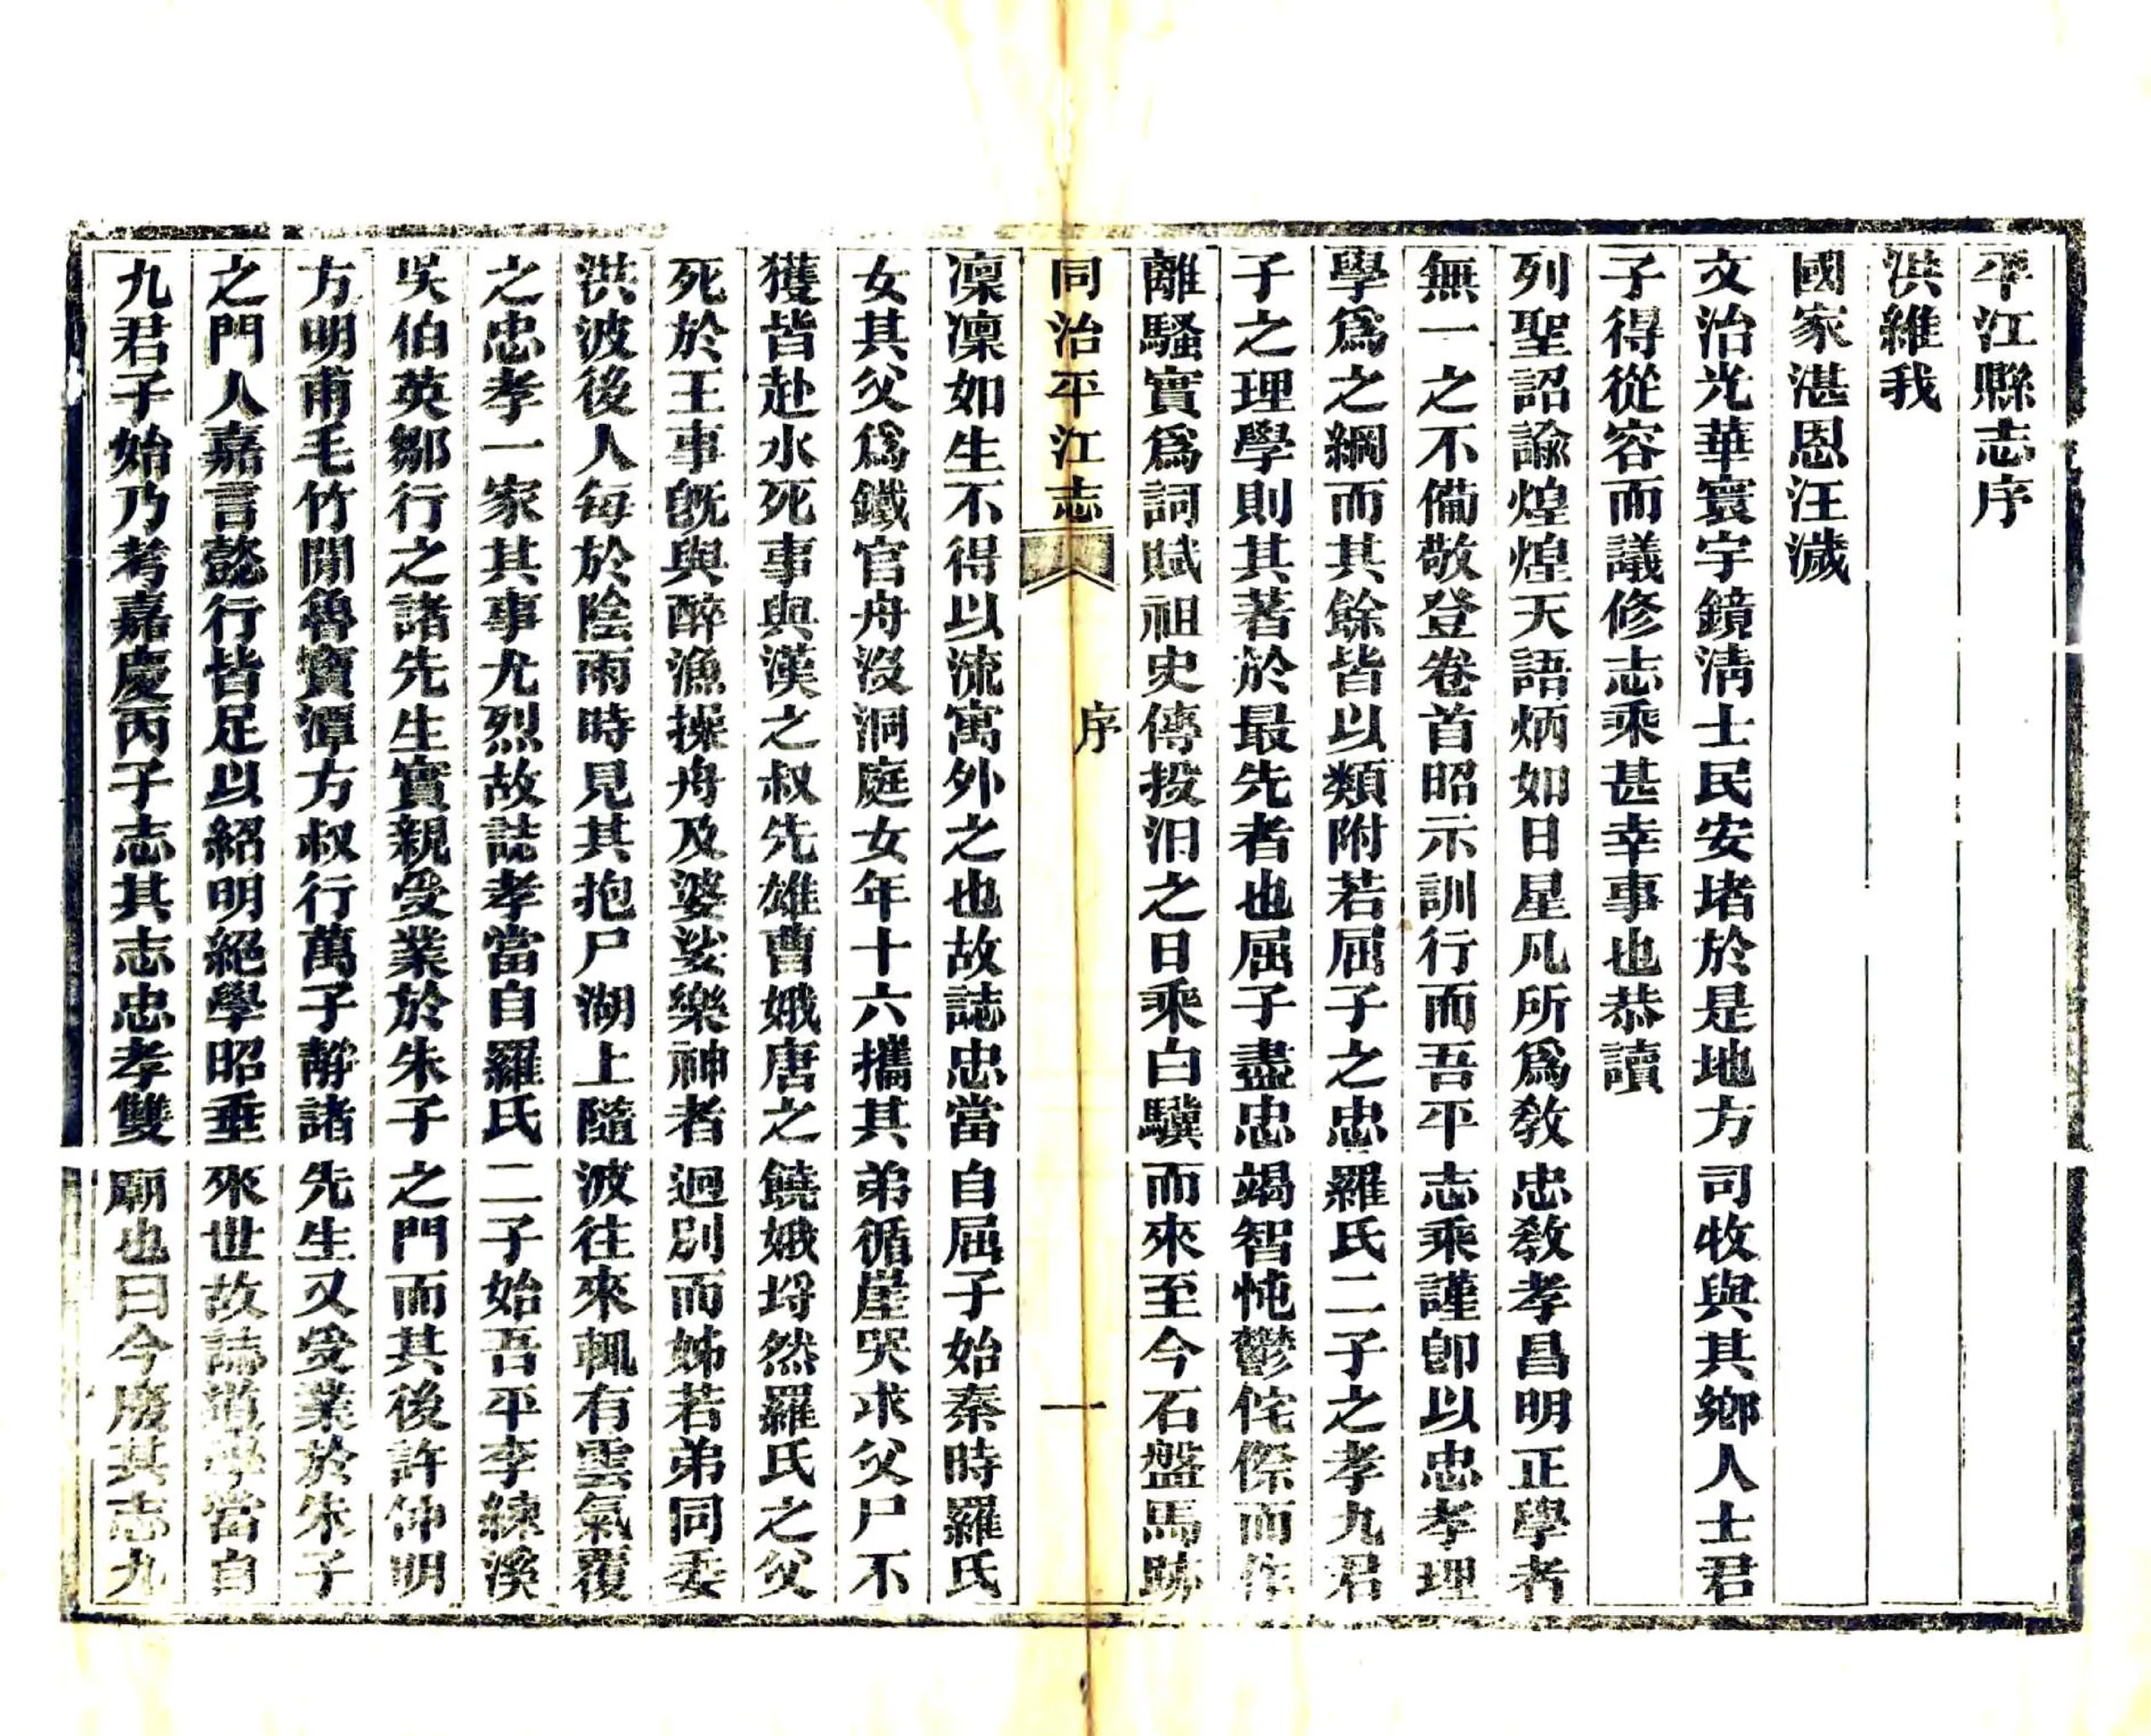 平江縣志序
洪維我
國家湛恩汪濊
文治光華寰宇鏡清士民安堵於是地方司牧與其鄉人士君
子得從容而議修志乘甚幸事也恭讀
列聖詔諭煌煌天語炳如日星凡所爲敎忠敎孝昌明正學者
無一之不備敬登卷首昭示訓行而吾平志乘謹卽以忠孝理
學爲之綱而其餘皆以類附若屈子之忠羅氏二子之孝九君
子之理學則其著於最先者也屈子盡忠竭智忳鬱侘傺而作
離騷實爲詞賦祖史傳投汨之日乘白驥而來至今石盤馬跡
同治平江志
序
一
凜凜如生不得以流寓外之也故誌忠當自屈子始秦時羅氏
女其父爲鐵官舟沒洞庭女年十六攜其弟循崖哭求父尸不
獲皆赴水死事與漢之叔先雄曹娥唐之饒娥埒然羅氏之父
死於王事旣與醉漁操舟及婆娑樂神者迥別而姊若弟同委
洪波後人每於陰雨時見其抱尸湖上隨波往來輒有雲氣覆
之忠孝一家其事尤烈故誌孝當自羅氏二子始吾平李練溪
吳伯英鄒行之諸先生實親受業於朱子之門而其後許仲明
方明甫毛竹閒魯寶潭方叔行萬子靜諸先生又受業於朱子
之門人嘉言懿行皆足以紹明絕學昭垂來世故誌道學當自
九君子始乃考嘉慶丙子志其志忠孝雙廟也曰今廢其志九